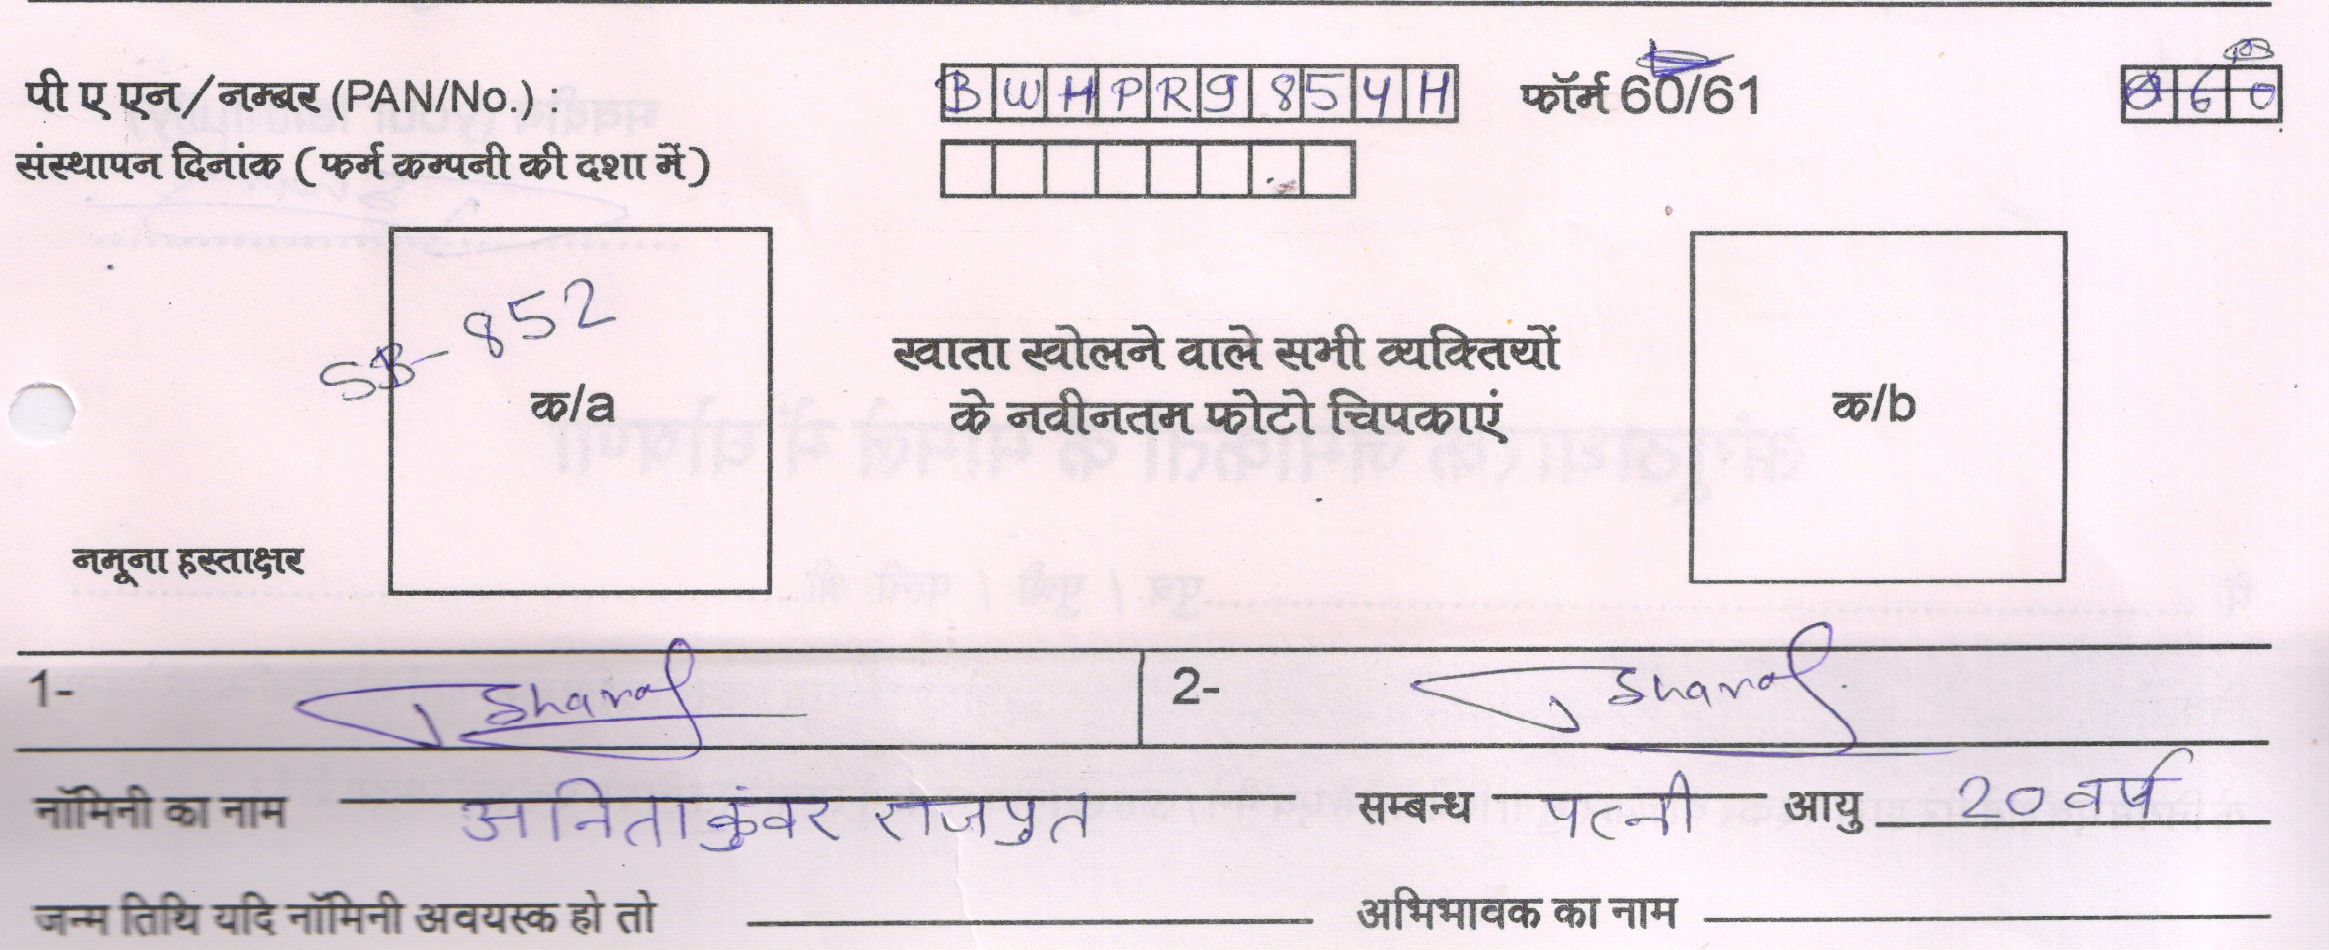 पी ए एन/नम्बर (PAN/No.) : BWHPR9854H फॉर्म 60/61
संस्थापन दिनांक (फर्म कम्पनी की दशा में)
SB-852
क/a
खाता खोलने वाले सभी व्यक्तियों
के नवीनतम फोटो चिपकाएं
क/b
नमूना हस्ताक्षर
1- 2-
नॉमिनी का नाम अनिता कुंवर राजपुत सम्बन्ध पत्नी आयु 20 वर्ष
जन्म तिथि यदि नॉमिनी अवयस्क हो तो अभिभावक का नाम